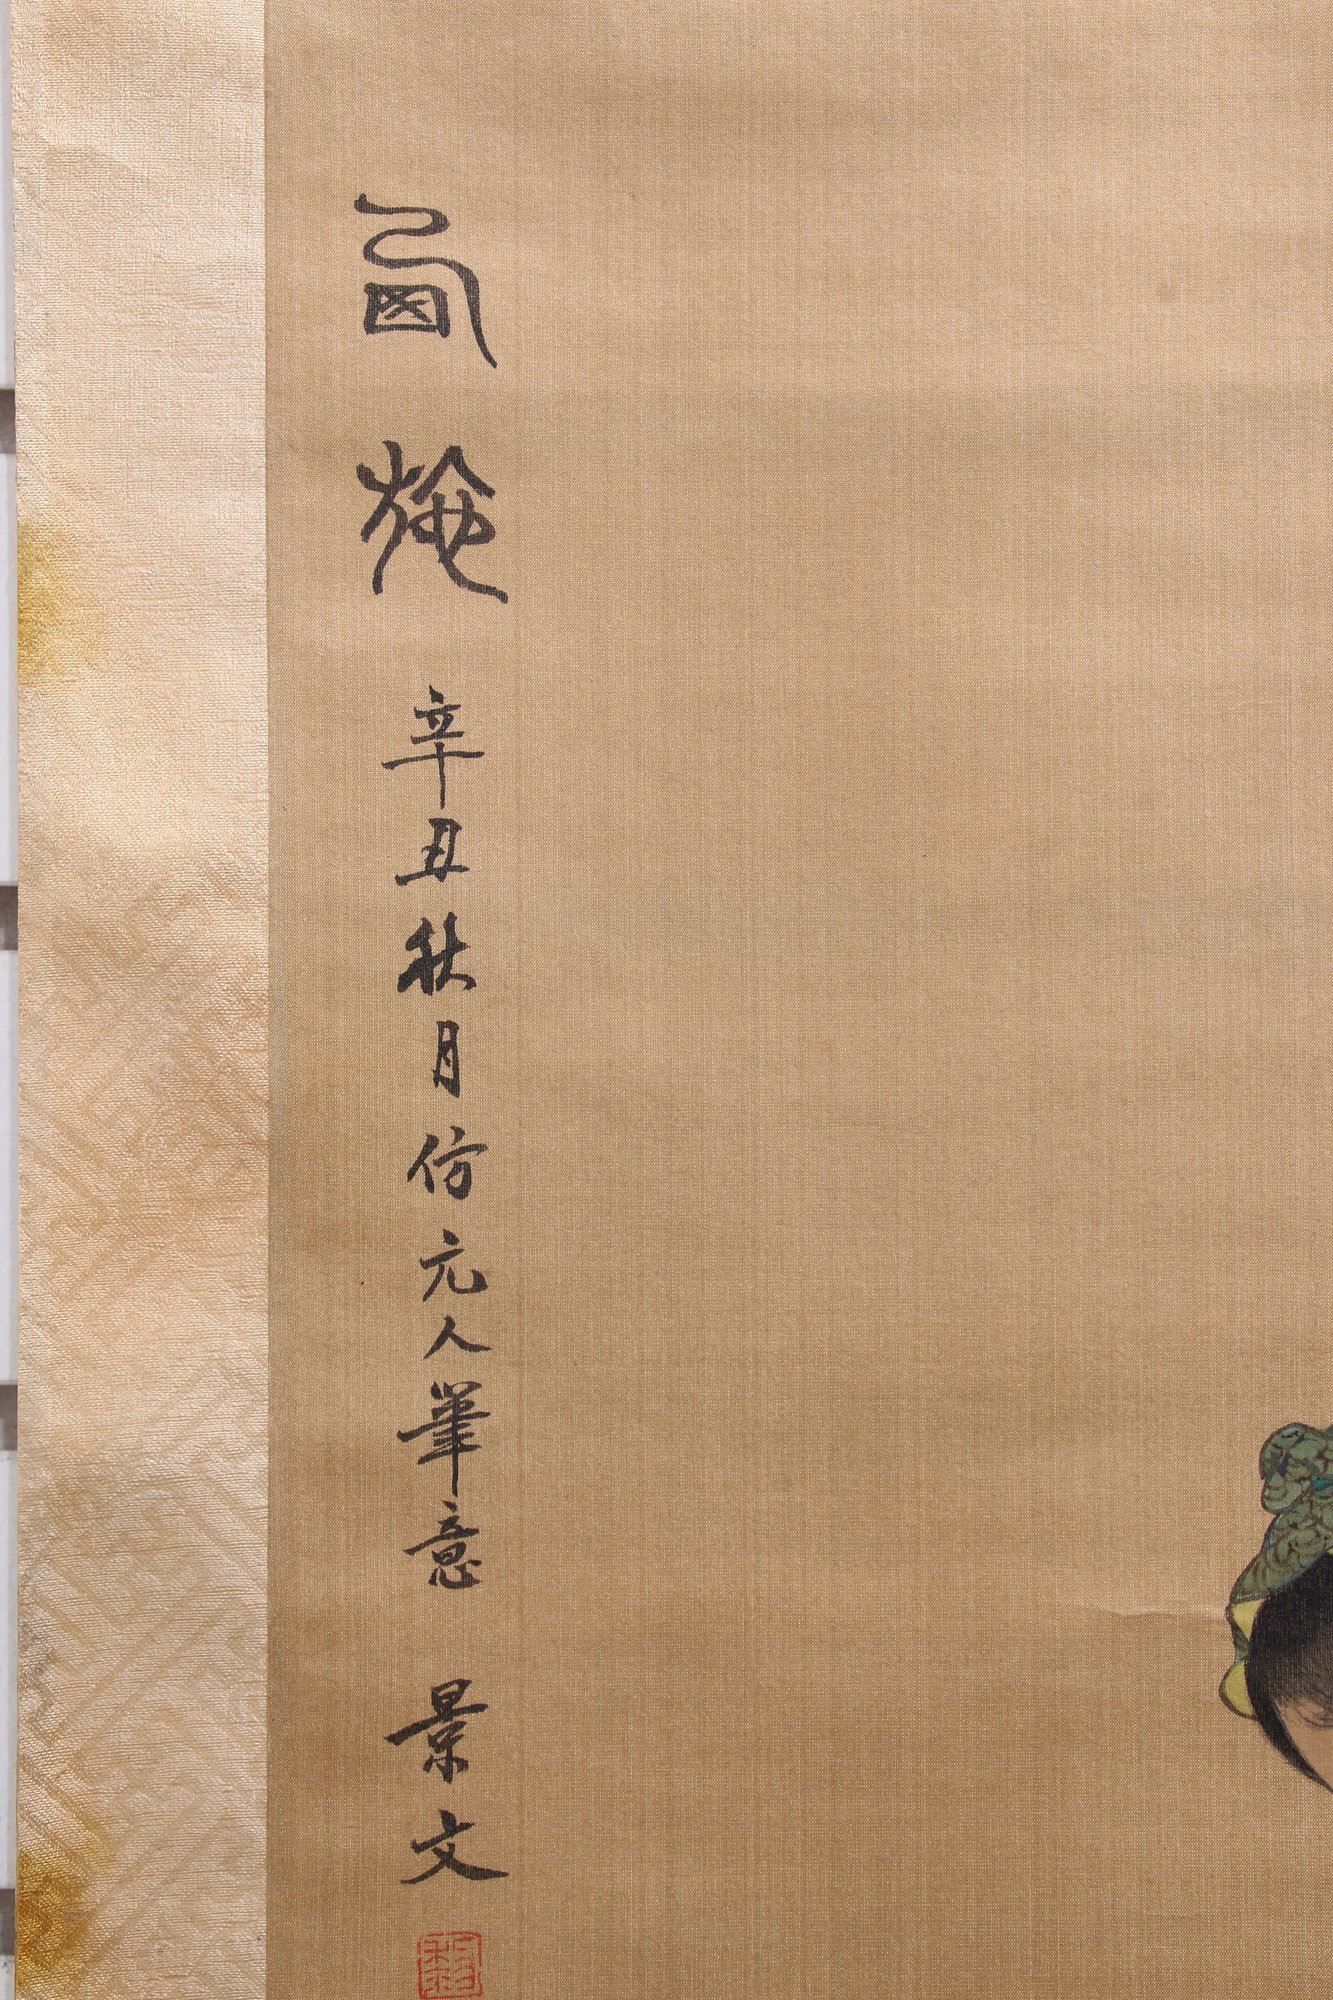 西施 辛丑秋月仿元人筆意 景文